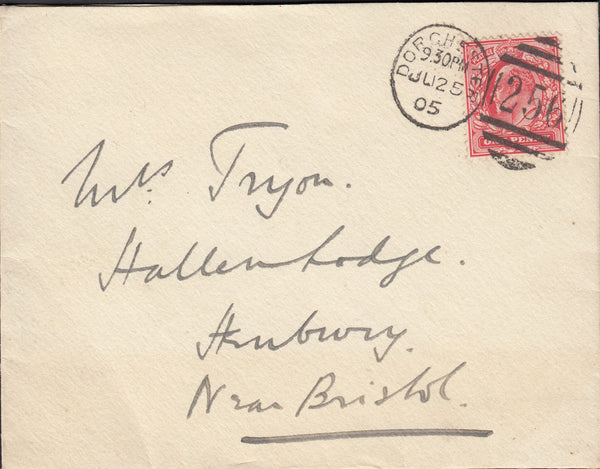 DORCHESTER
9.30PM
JU 25
05
256
Mrs. Tryon.
Hallen Lodge.
Henbury.
Near Bristol.